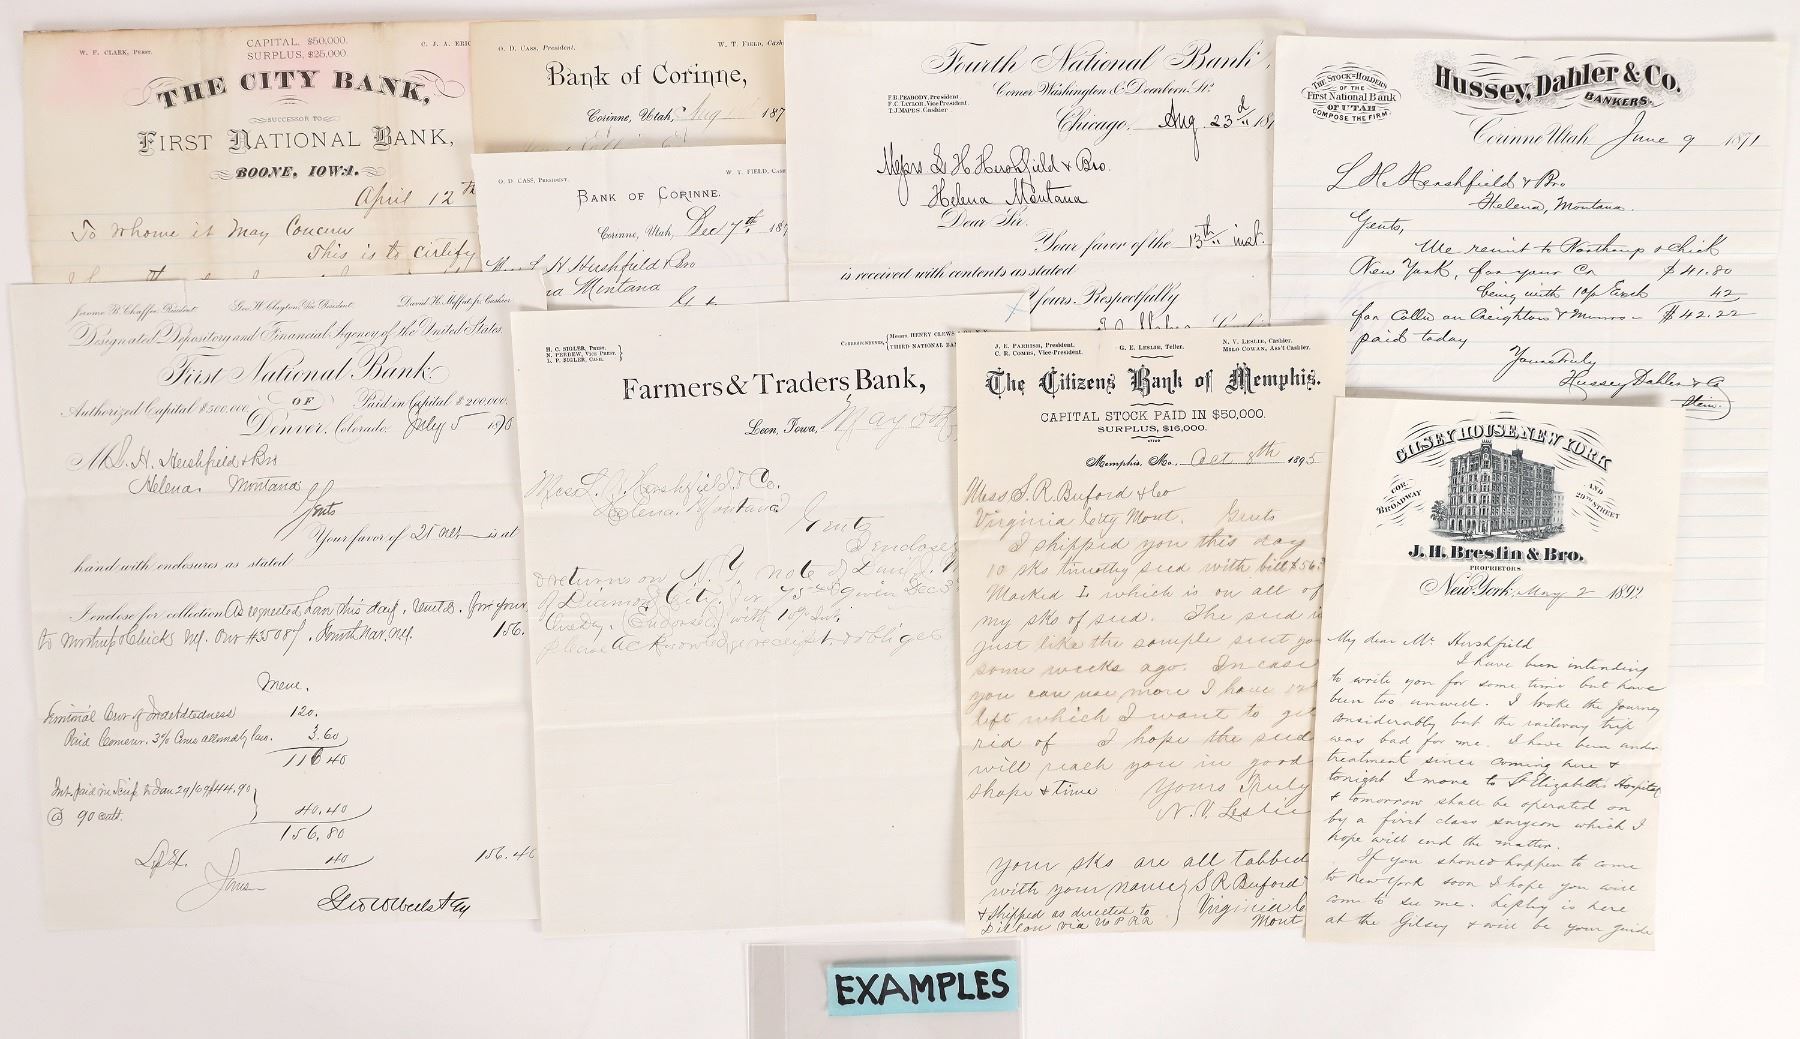 W. F. CLARK, PREST.
CAPITAL, $50,000.
SURPLUS, $25,000.
C. J. A. ERIC
THE CITY BANK,
SUCCESSOR TO
FIRST NATIONAL BANK,
BOONE, IOWA.
April 12th
To whome it May Concern
This is to cirtify
O. D. CASS, President.
W. T. FIELD, Cash
Bank of Corinne,
Corinne, Utah, Aug 187
O. D. CASS, PRESIDENT.
W. T. FIELD, CASH
BANK OF CORINNE.
Corinne, Utah, Dec 7th 187
L H Hershfield & Bro
a Montana
Fourth National Bank,
Corner Washington & Dearborn Sts
F. B. PEABODY, President
F. C. TAYLOR, Vice President
T. J. MAPES, Cashier
Chicago, Aug. 23d 187
Messrs L H Hershfield & Bro.
Helena Montana
Dear Sir.
Your favor of the 13th inst.
is received with contents as stated
Yours Respectfully
THE STOCK=HOLDERS
OF THE
First National Bank
OF UTAH
COMPOSE THE FIRM.
Hussey, Dahler & Co.
BANKERS.
Corinne Utah June 9 1871
L H. Hershfield & Bro
Helena, Montana.
Gents,
We remit to Northrup & Chick
New York, for your Cr $41.80
being with 1% Exch 42
for Colln on Creighton & Munro - $42.22
paid today
Yours Truly
Hussey Dahler & Co
Jerome B. Chaffee President
Geo. W. Clayton, Vice President
David H. Moffat Jr. Cashier
Designated Depository and Financial Agency of the United States.
First National Bank
Authorized Capital $500,000. OF Paid in Capital $200,000.
Denver, Colorado, July 5 1870
M L. H. Hershfield & Bro
Helena. Montana
Gents
Your favor of 21 is at
hand with enclosures as stated
I enclose for collection As requested, have this day, remtd. for your
to Northrup & Chicks NY. Our #35087. Fourth Nat. NY. 156.
Mem.
Territorial Cert of Indebtedness 120.
Paid Comr. 3% Coms allowed by Law. 3.60
116 40
Int. paid in Scrip to Jan 29/69 $44.90
@ 90 cents. 40.40
156.80
Less Ex. 40 156.40
H. C. SIGLER, PREST.
N. PERDEW, VICE PREST.
L. P. SIGLER, CASH.
CORRESPONDENTS,
MESSRS. HENRY CLEWS & CO. N.Y.
THIRD NATIONAL BAN
Farmers & Traders Bank,
Leon, Iowa, May
Mess L. H. Hershfield & Co.
Helena. Montana
Gents
I enclose
return on N. Y. note of
of Diamond City. for given Dec 3
Endorsed with
please acknowledge receipt & oblige
J. E. PARRISH, President.
C. R. COMBS, Vice-President.
G. E. LESLIE, Teller.
N. V. LESLIE, Cashier.
MILO COWAN, Ass't Cashier.
The Citizens Bank of Memphis.
CAPITAL STOCK PAID IN $50,000.
SURPLUS, $16,000.
Memphis, Mo., Oct 8th 1895
Mess S. R. Buford & Co
Virginia City Mont. Gents
I shipped you this day
10 sks timothy seed with bill $56
Marked L which is on all of
my sks of seed. The seed is
just like the sample sent you
some weeks ago. In case
you can use more I have
left which I want to get
rid of I hope the seed
will reach you in good
shape & time Yours Truly
N. V. Leslie
Your sks are all tabbed
with your name S R Buford
& shipped as directed to Virginia C
Dillon via U P RR Mont
GILSEY HOUSE, NEW YORK
COR BROADWAY
AND 29TH STREET
J. H. Breslin & Bro.
PROPRIETORS.
New York, May 2 1892
My dear Mr Hershfield
I have been intending
to write you for some time but have
been too unwell. I broke the journey
considerably but the railway trip
was bad for me. I have been under
treatment since coming here &
tonight I move to St Elizabeths Hospital
& tomorrow shall be operated on
by a first class surgeon which I
hope will end the matter.
If you should happen to come
to New York soon I hope you will
come to see me. Lepley is here
at the Gilsey & will be your guide
EXAMPLES